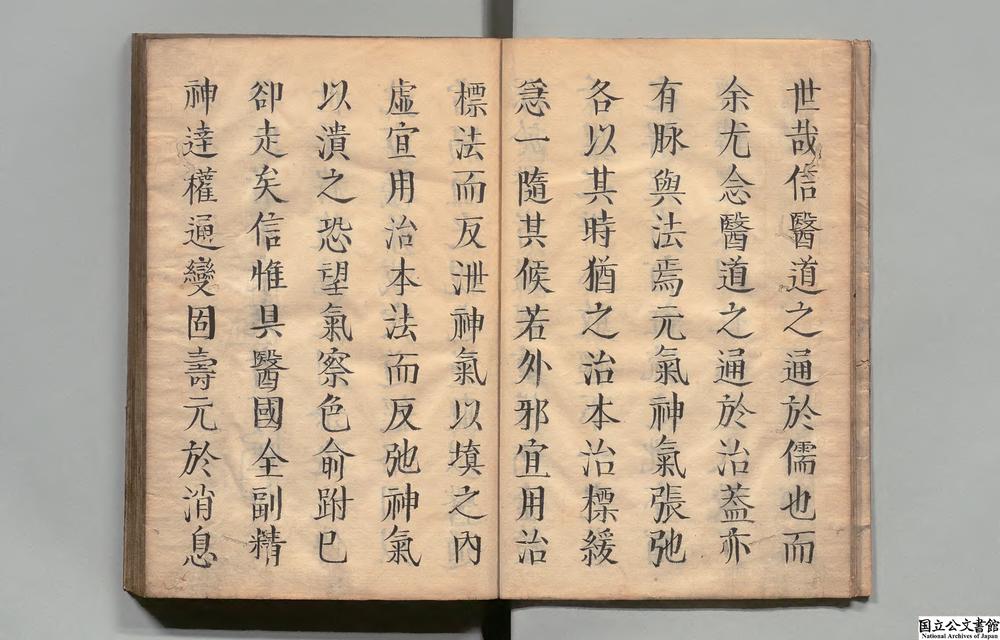 世哉信醫道之通於儒也而
余尤念醫道之通於治蓋亦
有脉與法焉元氣神氣張弛
各以其時猶之治本治標緩
急一隨其候若外邪宜用治
標法而反泄神氣以填之內
虛宜用治本法而反弛神氣
以潰之恐望氣察色俞跗巳
卻走矣信惟具醫國全副精
神達權通變固壽元於消息
国立公文書館
National Archives of Japan